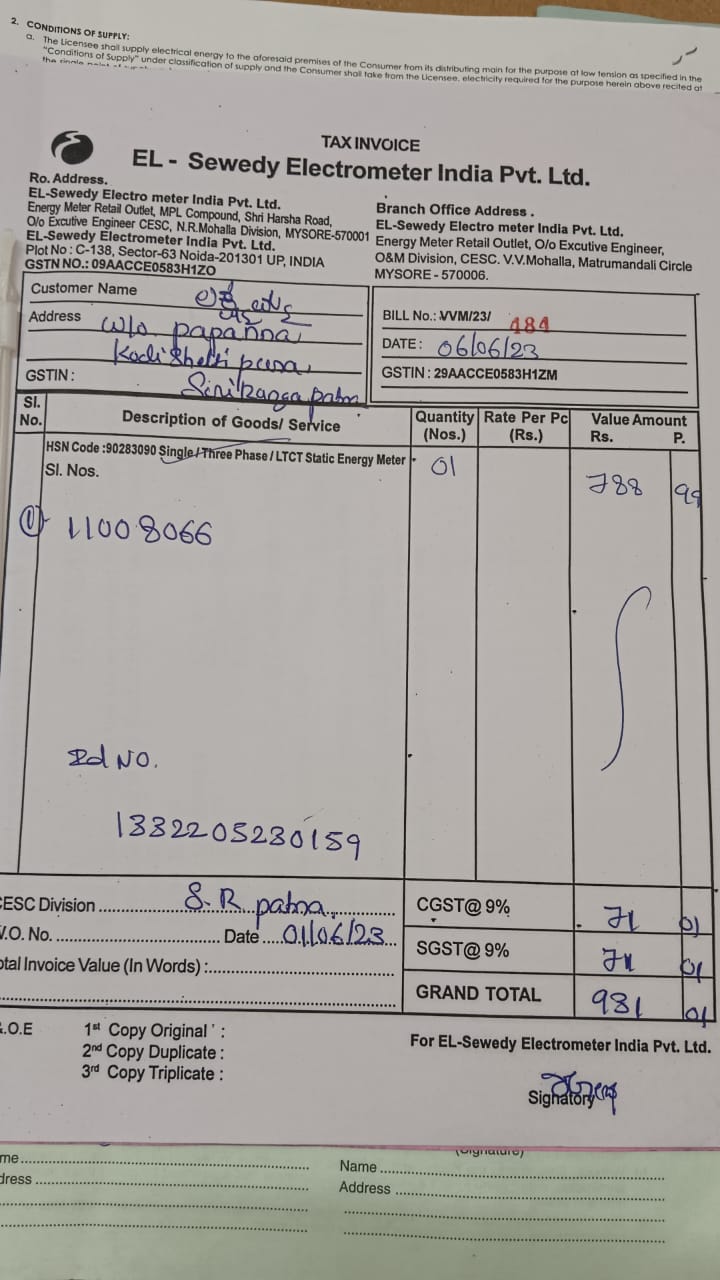 2. CONDITIONS OF SUPPLY:
a. The Licensee shall supply electrical energy to the aforesaid premises of the Consumer from its distributing main for the purpose at low tension as specified in the
"Conditions of Supply" under classification of supply and the Consumer shall take from the Licensee, electricity required for the purpose herein above recited at
TAX INVOICE
EL - Sewedy Electrometer India Pvt. Ltd.
Ro. Address.
EL-Sewedy Electro meter India Pvt. Ltd.
Energy Meter Retail Outlet, MPL Compound, Shri Harsha Road,
O/o Excutive Engineer CESC, N.R.Mohalla Division, MYSORE-570001
EL-Sewedy Electrometer India Pvt. Ltd.
Plot No : C-138, Sector-63 Noida-201301 UP, INDIA
GSTN NO.: 09AACCE0583H1ZO
Branch Office Address .
EL-Sewedy Electro meter India Pvt. Ltd.
Energy Meter Retail Outlet, O/o Excutive Engineer,
O&M Division, CESC. V.V.Mohalla, Matrumandali Circle
MYSORE - 570006.
Customer Name
Address w/o papanna,
Kodishetti pura,
GSTIN :
BILL No.: VVM/23/ 484
DATE: 06/06/23
GSTIN : 29AACCE0583H1ZM
Sl. No. Description of Goods/ Service Quantity (Nos.) Rate Per Pc (Rs.) Value Amount Rs. P.
HSN Code :90283090 Single / Three Phase / LTCT Static Energy Meter 01 788 99
Sl. Nos.
① 11008066
Rd No.
1332205230159
CESC Division S.R patna
W.O. No. Date 01/06/23
Total Invoice Value (In Words) :
CGST@ 9% 71 01
SGST@ 9% 71 01
GRAND TOTAL 931 01
.O.E
1st Copy Original ' :
2nd Copy Duplicate :
3rd Copy Triplicate :
For EL-Sewedy Electrometer India Pvt. Ltd.
Signatory
(Signature)
Name
Address